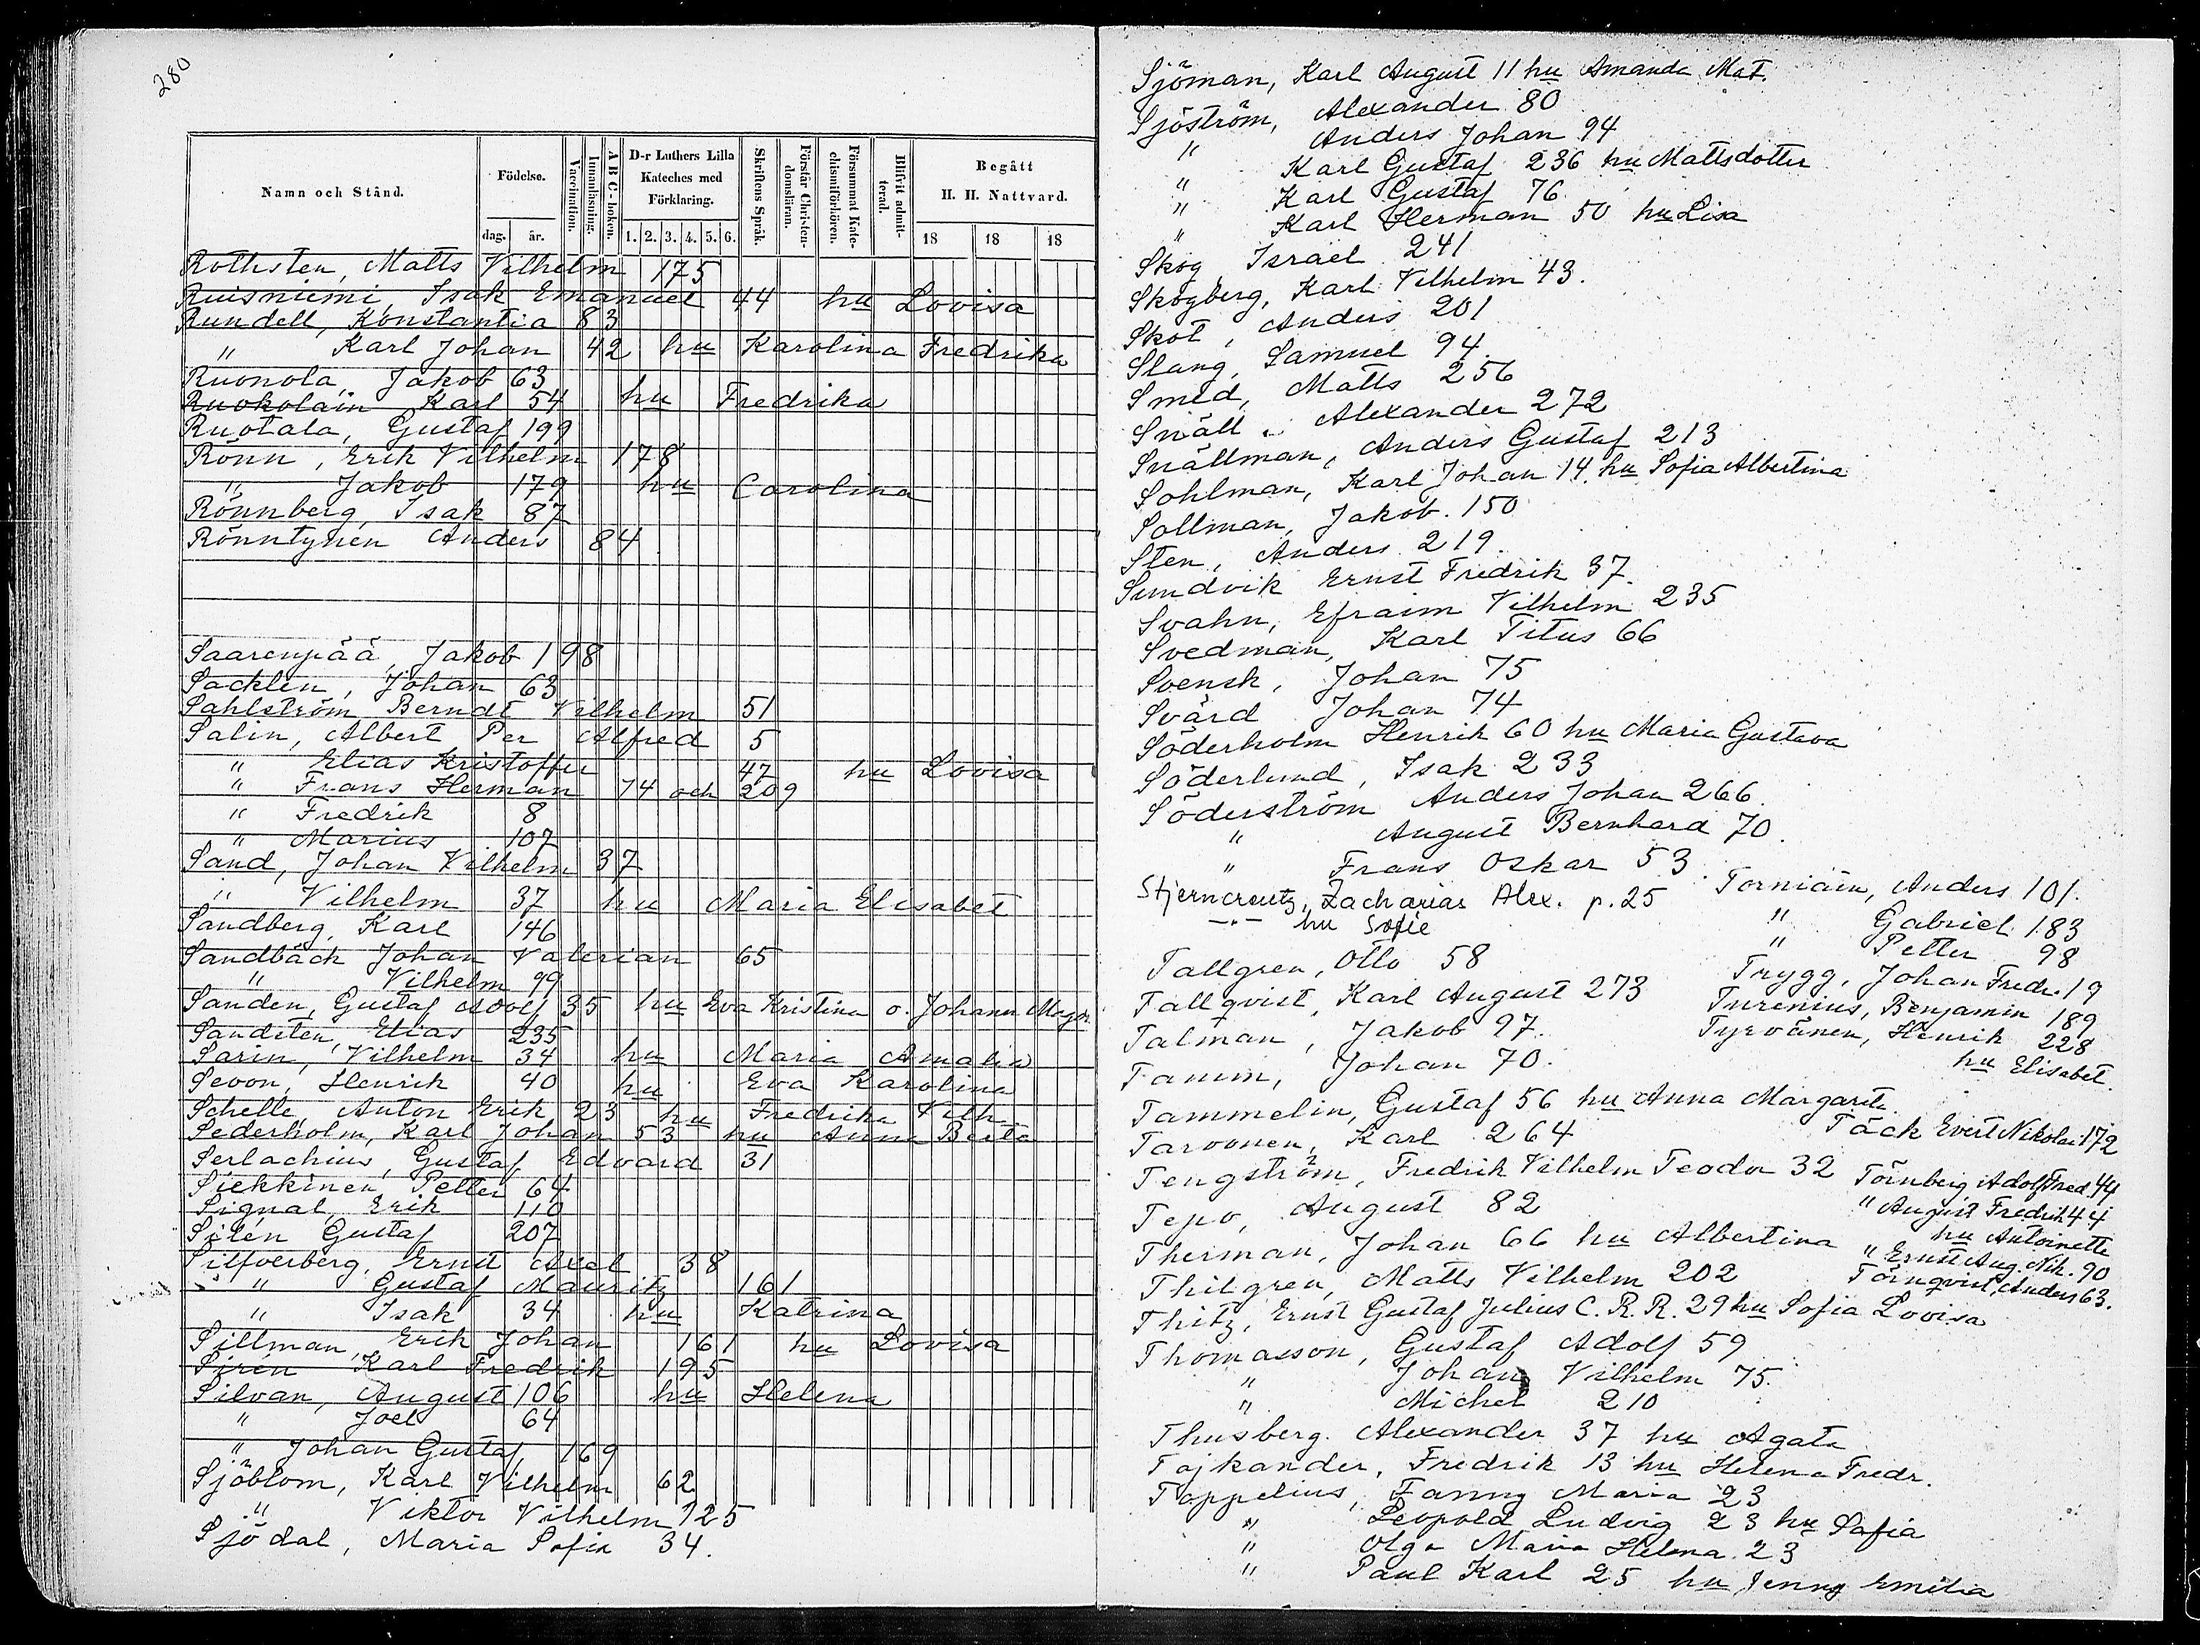 280
Namn och Stånd.
Födelse.
dag. år.
Vaccination.
Innanläsning.
A B C-boken.
D-r Luthers Lilla
Kateches med
Förklaring.
1. 2. 3. 4. 5. 6.
Skriftens Språk.
Förstår Christen-
domsläran.
Försummat Kate-
chismiförhören.
Blifvit admit-
terad.
Begått
H. H. Nattvard.
18 18 18
Rothsten, Matts Vilhelm 175
Ruisniemi, Isak Emanuel 44 hu Lovisa
Rundell, Konstantia 83
" Karl Johan 42 hu Karolina Fredrika
Ruonola, Jakob 63
Ruokolain Karl 54 hu Fredrika
Ruotala, Gustaf 199
Rönn, Erik Vilhelm 178
" Jakob 179 hu Carolina
Rönnberg, Isak 87
Rönntynen Anders 84
Saarenpää, Jakob 198
Sacklen, Johan 63
Sahlström Berndt Vilhelm 51
Salin, Albert Per Alfred 5
" Elias Kristoffer 47 hu Lovisa
" Frans Herman 74 och 209
" Fredrik 8
" Marius 107
Sand, Johan Vilhelm 37
" Vilhelm 37 hu Maria Elisabet
Sandberg, Karl 146
Sandbäck Johan Valerian 65
" Vilhelm 99
Sanden, Gustaf Adolf 35 hu Eva Kristina o. Johanna Magr.
Sandsten, Elias 235
Sarin, Vilhelm 34 hu Maria Amalia
Sevon, Henrik 40 hu Eva Karolina
Schelle, Anton Erik 23 hu Fredrika Vilh.
Sederholm, Karl Johan 53 hu Anna Berta
Serlachius, Gustaf Edvard 31
Siekkinen, Petter 64
Signal, Erik 110
Silén Gustaf 207
Silfverberg, Ernst Axel 38
" Gustaf Mauritz 161
" Isak 34 hu Katrina
Sillman, Erik Johan 161 hu Lovisa
Siren Karl Fredrik 195
Silvan, August 106 hu Helena
" Joel 64
" Johan Gustaf, 169
Sjöblom, Karl Vilhelm 62
" Viktor Vilhelm 125
Sjödal, Maria Sofia 34.
Sjöman, Karl August 11 hu Amanda Mat.
Sjöström, Alexander 80
" Anders Johan 94
" Karl Gustaf 236 hu Mattsdotter
" Karl Gustaf 76
" Karl Herman 50 hu Lisa
Skog, Israel 241
Skogberg, Karl Vilhelm 43.
Skot, Anders 201
Slang, Samuel 94.
Smed, Matts 256
Snäll, Alexander 272
Snällman, Anders Gustaf 213
Sohlman, Karl Johan 14. hu Sofia Albertina
Sollman, Jakob. 150
Sten, Anders 219.
Sundvik Ernst Fredrik 37.
Svahn, Efraim Vilhelm 235
Svedman, Karl Titus 66
Svensk, Johan 75
Svärd Johan 74
Söderholm Henrik 60 hu Maria Gustava
Söderlund, Isak 233
Söderström Anders Johan 266.
" August Bernhard 70.
" Frans Oskar 53
Stjerncreutz, Zacharias Alex. p. 25
—"— hu Sofie
Tallgren, Otto 58
Tallqvist, Karl August 273
Talman, Jakob 97.
Tamm, Johan 70.
Tammelin, Gustaf 56 hu Anna Margareta.
Tarvonen, Karl 264
Tengström, Fredrik Vilhelm Teodor 32
Tepo, August 82
Therman, Johan 66 hu Albertina
Thilgren, Matts Vilhelm 202
Thitz, Ernst Gustaf Julius C. R. R. 29 hu Sofia Lovisa
Thomasson, Gustaf Adolf 59
" Johan Vilhelm 75.
" Michel 210
Thusberg. Alexander 37 hu Agata
Tojkander, Fredrik 13 hu Helena Fredr.
Toppelius, Fanny Maria 23
" Leopold Ludvig 23 hu Sofia
" Olga Maria Helena 23
" Paul Karl 25 hu Jenny Emilia
Torniain, Anders 101.
" Gabriel 183
" Petter 98
Trygg, Johan Fredr. 19
Turenius, Benjamin 189
Tyrvänen, Henrik 228
hu Elisabet.
Täck Evert Nikolai 172
Törnberg Adolf Fred 44
" August Fredrik 44
hu Antoinette
" Ernst Aug. Nik. 90
Törnqvist, Anders 63.